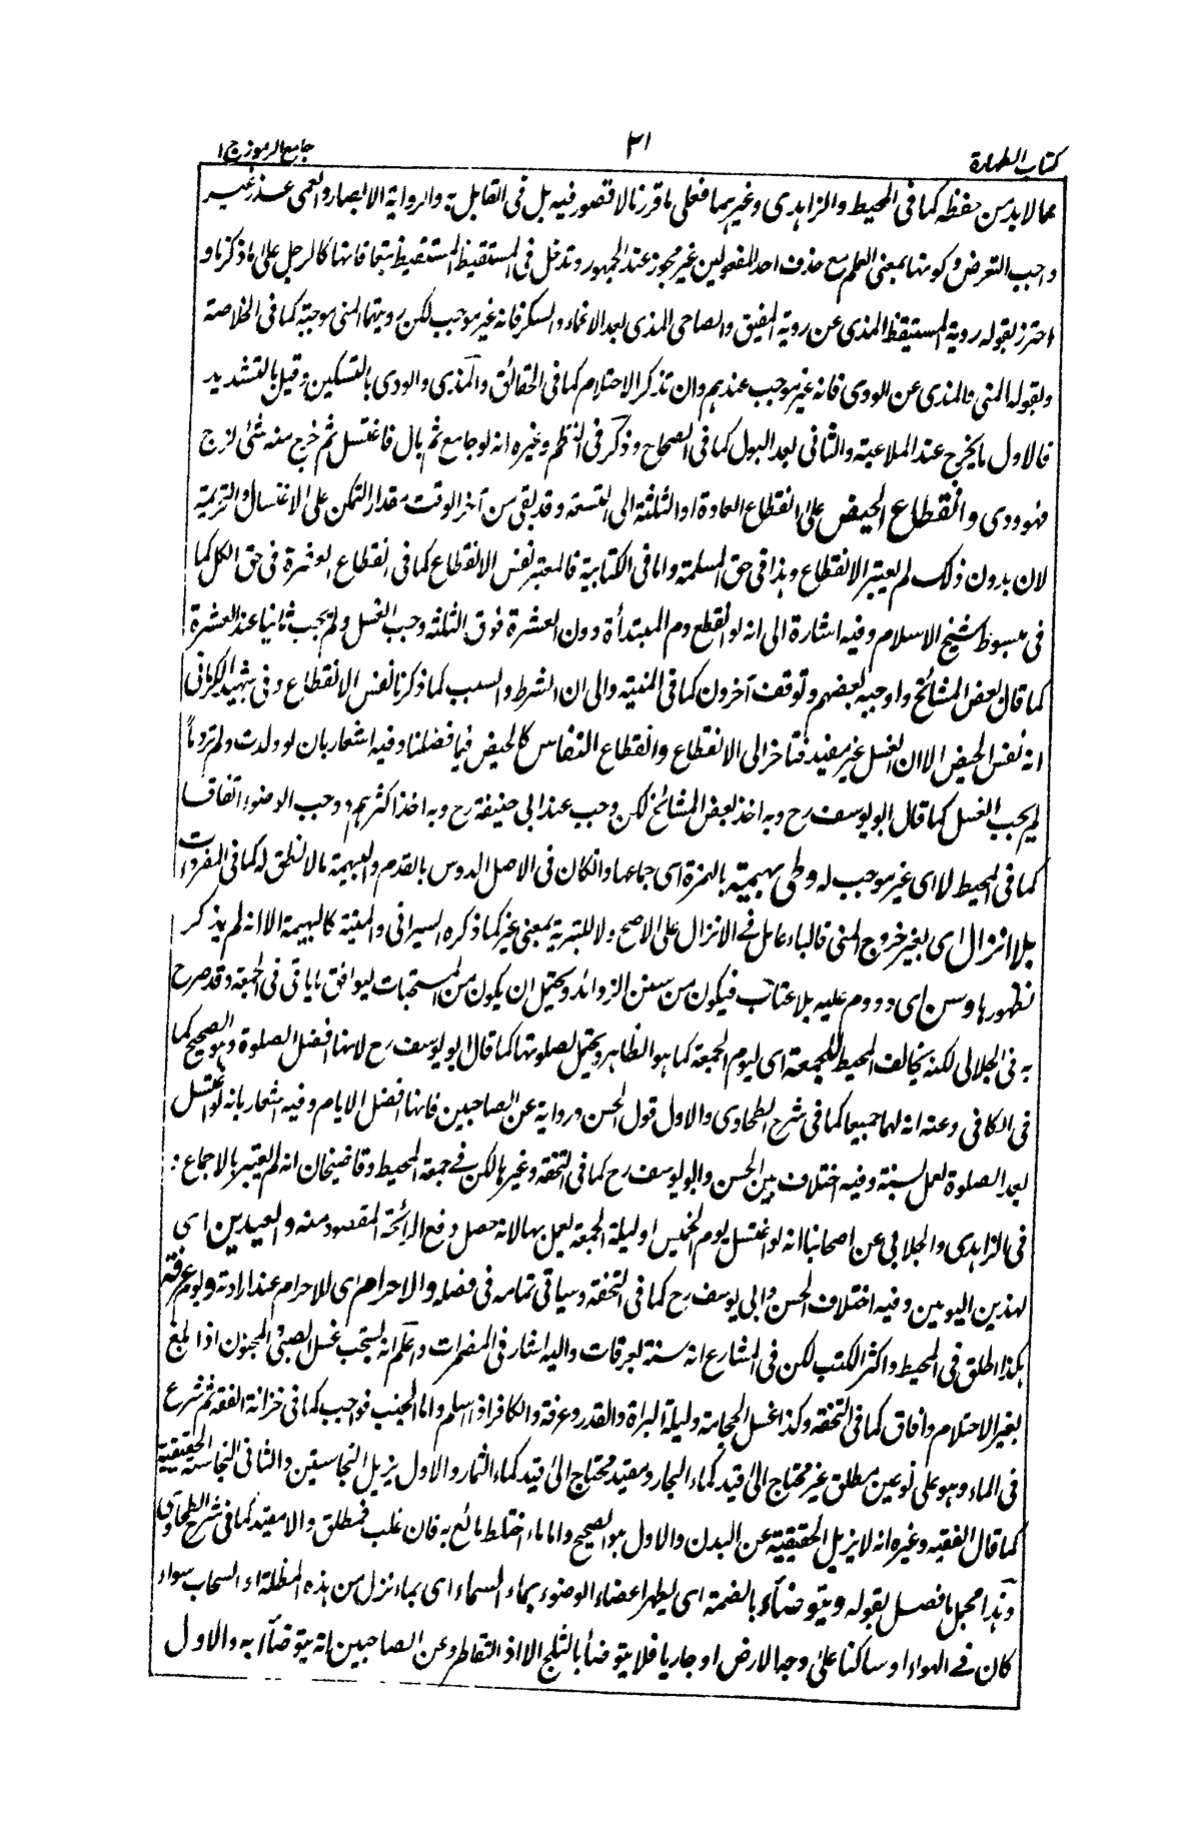 كتاب الطهارة ٣١ جامع الرموز ج ١
مما لابد من حفظه كما فى المحيط والزاهدى وغيرهما فعلى ما قررنا لا قصور فيه بل فى القابل به والرواية الابصار والعمى عذر غير
واجب التعرض وكونها بمعنى العلم مع حذف احد المفعولين غير مجوز عند الجمهور وتدخل فى المستقيظ المستقيظة تبعا فانها كالرجل على ما ذكرنا و
احترز بقوله روية المستيقظ المذى عن روية المفيق والصاحى المذى بعد الاغماء والسكر فانه غير موجب لكن رويتهما المنى موجبة كما فى الخلاصة
وبقوله المنى والمذى عن الودى فانه غير موجب عندهم وان تذكر الاحتلام كما فى الحقائق والمذى والودى بالتسكين وقيل بالتشديد
فالاول ما يخرج عند الملاعبة والثانى بعد البول كما فى الصحاح وذكر فى النظم وغيره انه لو جامع ثم بال فاغتسل ثم خرج منه شئ لزج
فهو ودى وانقطاع الحيض على انقطاع العادة او الثلثة الى التسعة وقد بقى من آخر الوقت مقدار التمكن على الاغتسال والتحريمة
لان بدون ذلك لم يعتبر الانقطاع وهذا فى حق المسلمة واما فى الكتابية فالمعتبر نفس الانقطاع كما فى انقطاع العشرة فى حق الكل كما
فى مبسوط شيخ الاسلام وفيه اشارة الى انه لو انقطع دم المبتدأة دون العشرة فوق الثلثة وجب الغسل ولم يجب ثانيا عند العشرة
كما قال بعض المشائخ واوجبه بعضهم وتوقف آخرون كما فى المنية والى ان الشرط والسبب كما ذكرنا نفس الانقطاع وفى شهيد الكرمانى
انه نفس الحيض الا ان الغسل غير مفيد فتاخر الى الانقطاع وانقطاع النفاس كالحيض فيما فصلنا وفيه اشعار بان لو ولدت ولم تر دماً
لم يجب الغسل كما قال ابو يوسف رح وبه اخذ بعض المشائخ لكن وجب عند ابى حنيفة رح وبه اخذ اكثرهم ووجب الوضوء اتفاقا
كما فى المحيط لا اى غير موجب له وطى بهيمة بالهمزة اى جماعها وانكان فى الاصل الدوس بالقدم والبهيمة ما لا نطق له كما فى المفردات
بلا انزال اى بغير خروج المنى فالباء عامل فى الانزال على الاصح ولا للتبرية بمعنى غير كما ذكره السيرافى والميتة كالبهيمة الا انه لم يذكر
لظهورها وسن اى دووم عليه بلا عتاب فيكون من سنن الزوائد ويحتمل ان يكون من المستحبات ليوافق ما ياتى فى الجمعة وقد صرح
به فى الجلالى لكنه يخالف المحيط للجمعة اى ليوم الجمعة كما هو الظاهر ويحتمل لصلوتها كما قال ابو يوسف رح لانها افضل الصلوة وهو الصحيح كما
فى الكافى وعنه انه لهما جميعا كما فى شرح الطحاوى والاول قول الحسن ورواية عن الصاحبين فانها افضل الايام وفيه اشعار بانه لو اغتسل
بعد الصلوة لعمل بسنة وفيه اختلاف بين الحسن وابو يوسف رح كما فى التحفة وغيرها لكن فى جمعة المحيط وقاضيخان انه لم يعتبر بالاجماع :
فى الزاهدى والجلابى عن اصحابنا انه لو اغتسل يوم الخميس او ليلة الجمعة لعمل بها لانه حصل دفع الرائحة المقصود منه والعيدين اى
لهذين اليومين وفيه اختلاف الحسن وابى يوسف رح كما فى التحفة وسياتى تمامه فى فصله والاحرام اى للاحرام عند ارادته ويوم عرفة
هكذا اطلق فى المحيط واكثر الكتب لكن فى المشارع انه سنة لعرفات واليه اشار فى المضمرات واعلم انه يستحب غسل الصبى والمجنون اذا بلغ
بغير الاحتلام وافاق كما فى التحفة وكذا غسل الحجامة وليلة البراة والقدر وعرفة والكافر اذا اسلم واما الجنب فواجب كما فى خزانة الفقه ثم شرع
فى الماء وهو على نوعين مطلق غير محتاج الى قيد كماء البحار ومقيد محتاج الى قيد كماء الثمار والاول يزيل النجاستين والثانى النجاسة الحقيقية
كما قال الفقيه وغيره انه لا يزيل الحقيقية عن البدن والاول هو الصحيح واما ماء اختلط مائع به فان غلب فمطلق والا مقيد كما فى شرح الطحاوى
وهذا مجمل ما فصل بقوله ويتوضأ بالضمة اى ليطهر اعضاء الوضوء بماء السماء اى بماء نزل من هذه المظلة او السحاب سواء
كان فى الهواء او ساكنا على وجه الارض او جاريا فلا يتوضأ بالثلج الا اذا التقاطر وعن الصاحبين انه يتوضأ به والاول